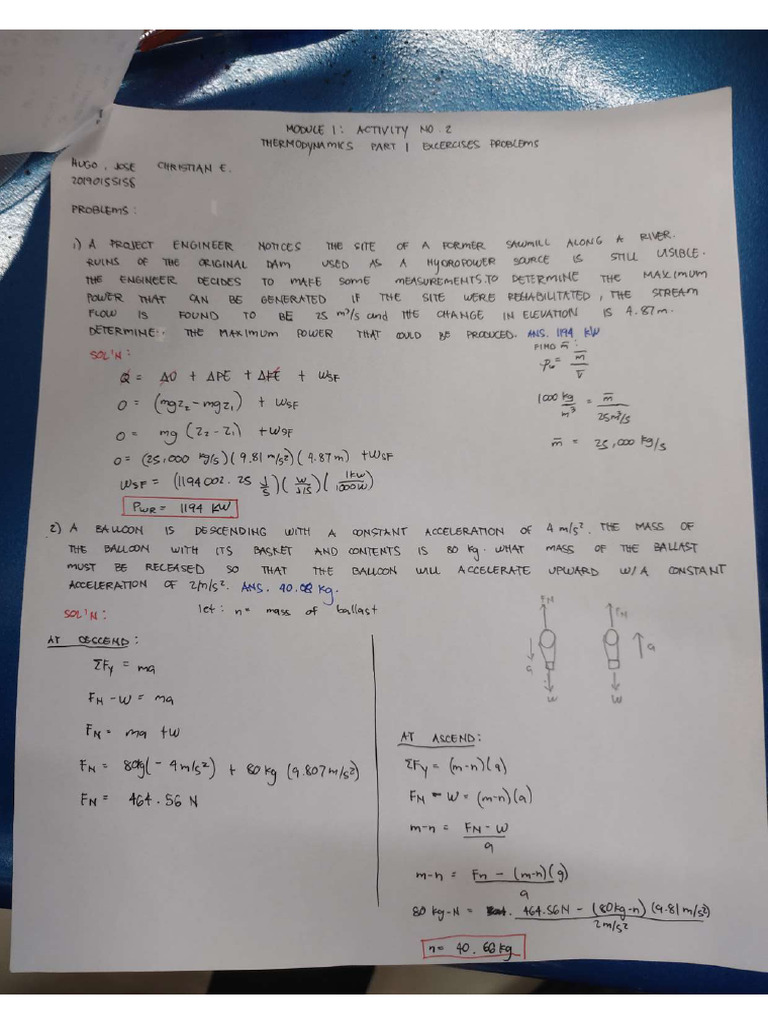 MODULE 1: ACTIVITY NO. 2
THERMODYNAMICS PART 1 EXCERCISES PROBLEMS
HUGO, JOSE CHRISTIAN E.
20190155158
PROBLEMS:
1) A PROJECT ENGINEER NOTICES THE SITE OF A FORMER SAWMILL ALONG A RIVER.
RUINS OF THE ORIGINAL DAM USED AS A HYDROPOWER SOURCE IS STILL VISIBLE.
THE ENGINEER DECIDES TO MAKE SOME MEASUREMENTS.TO DETERMINE THE MAXIMUM
POWER THAT CAN BE GENERATED IF THE SITE WERE REHABILITATED, THE STREAM
FLOW IS FOUND TO BE 25 m³/s and THE CHANGE IN ELEVATION IS 4.87m.
DETERMINE: THE MAXIMUM POWER THAT COULD BE PRODUCED. ANS. 1194 KW
SOL'N:
Q = ΔU + ΔPE + ΔKE + WSF
0 = (mgz₂ - mgz₁) + WSF
0 = mg (z₂ - z₁) + WSF
0 = (25,000 kg/s)(9.81 m/s²)(4.87 m) + WSF
WSF = (1194002.25 J/S)(W/J/S)(1KW/1000W)
PWR = 1194 KW
FIND m̅:
ρw = m̅/V̅
1000 kg/m³ = m̅/25m³/s
m̅ = 25,000 kg/s
2) A BALLOON IS DESCENDING WITH A CONSTANT ACCELERATION OF 4 m/s². THE MASS OF
THE BALLOON WITH ITS BASKET AND CONTENTS IS 80 kg. WHAT MASS OF THE BALLAST
MUST BE RELEASED SO THAT THE BALLOON WILL ACCELERATE UPWARD W/A CONSTANT
ACCELERATION OF 2/m/s². ANS. 40.08 kg.
SOL'N:
let: n = mass of ballast
AT DESCEND:
ΣFy = ma
FN - W = ma
FN = ma + W
FN = 80kg(-4m/s²) + 80kg (9.807m/s²)
FN = 464.56 N
FN
a
W
FN
a
W
AT ASCEND:
ΣFy = (m-n)(a)
FN - W = (m-n)(a)
m-n = FN - W/a
m-n = Fn - (m-n)(g)/a
80 kg-N = 464.56N - (80kg-n)(9.81m/s²)/2m/s²
n = 40.66kg